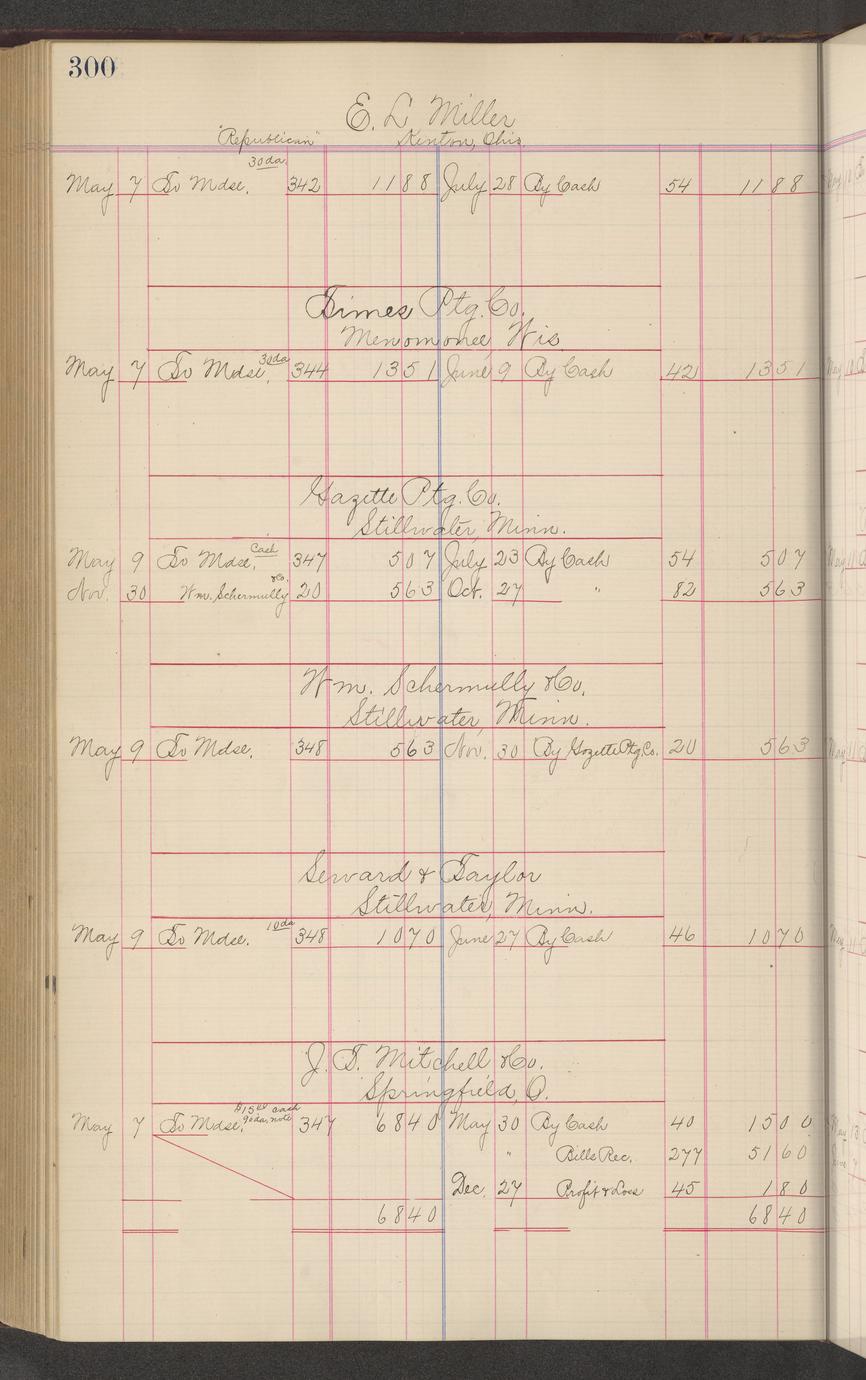 300
E. L. Miller
"Republican" Kenton, Ohio
30 da.
May 7 To Mdse. 342 11 88 July 28 By Cash 54 11 88
Times Ptg. Co.
Menomonee, Wis.
30 da
May 7 To Mdse. 344 13 51 June 9 By Cash 42 13 51
Gazette Ptg. Co.
Stillwater, Minn.
Cash
May 9 To Mdse. 347 5 07 July 23 By Cash 54 5 07
Nov. 30 Wm. Schermully & Co. 20 5 63 Oct. 27 " 82 5 63
Wm. Schermully & Co.
Stillwater, Minn.
May 9 To Mdse. 348 5 63 Nov. 30 By Gazette Ptg. Co. 20 5 63
Seward & Taylor
Stillwater, Minn.
10 da
May 9 To Mdse. 348 10 70 June 27 By Cash 46 10 70
J. T. Mitchell & Co.
Springfield, O.
$15.00 cash
90 da. note
May 7 To Mdse. 347 68 40 May 30 By Cash 40 15 00
" Bills Rec. 277 51 60
Dec. 27 Profit & Loss 45 1 80
68 40 68 40